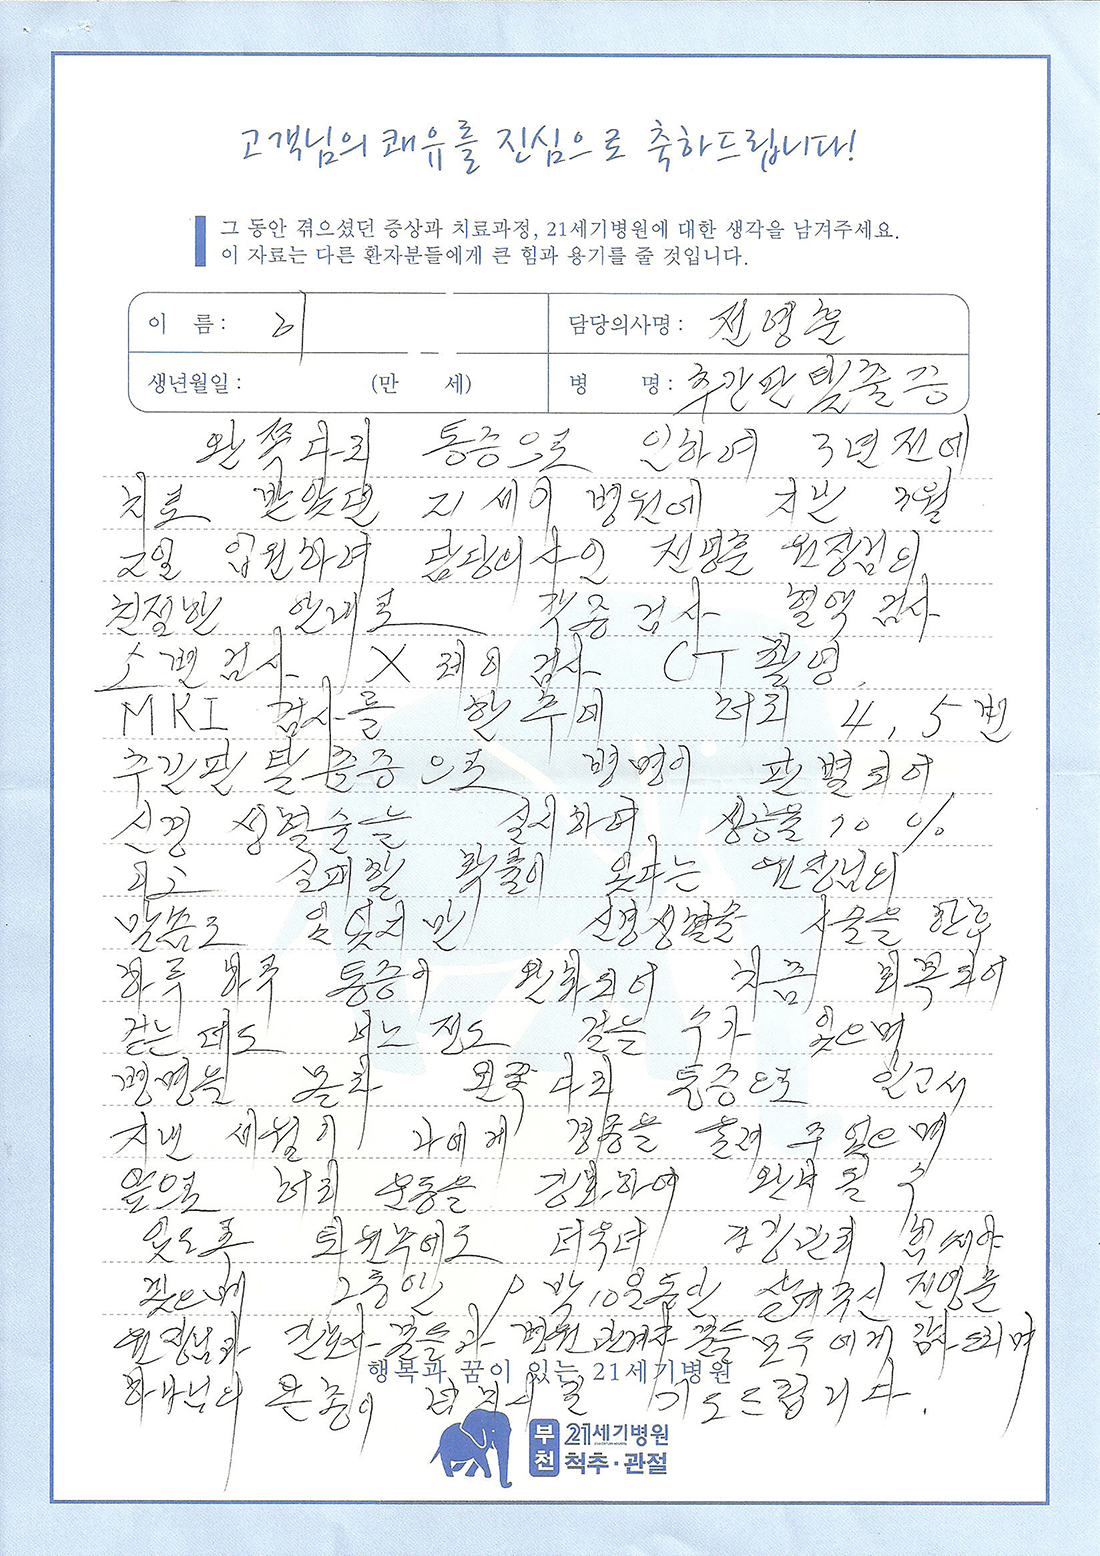 고객님의 쾌유를 진심으로 축하드립니다!
그 동안 겪으셨던 증상과 치료과정, 21세기병원에 대한 생각을 남겨주세요.
이 자료는 다른 환자분들에게 큰 힘과 용기를 줄 것입니다.
이 름 :
담당의사명 : 전영훈
생년월일 : (만 세)
병 명 : 추간판 탈출증
왼쪽다리 통증으로 인하여 3년전에
치료 받았던 21세기 병원에 지난 7월
2일 입원하여 담당의사인 전영훈 원장님의
친절한 안내로 각종검사 혈액검사
소변검사 X레이검사 CT촬영
MRI 검사를 한 후에 허리 4, 5번
추간판 탈출증으로 병명이 판별되어
신경 성형술을 실시하여 성공율 70%
이고 실패할 확률이 있다는 원장님의
말씀도 있었지만 신경성형술 시술을 한후
하루하루 통증이 완화되어 차츰 회복되어
걷는데도 어느정도 걸을 수가 있으며
병명을 몰라 왼쪽다리 통증으로
지난 세월이 나에게 경종을 울려 주었으며
앞으로 허리 운동을 강화하여 완쾌 될 수
있도록 퇴원후에도 더욱더 건강관리 힘써야
겠으며 그동안 9박10일동안 살펴주신 전영훈
원장님과 간호사분들과 병원관계자 분들 모두에게 감사드리며
하나님의 은총이 넘치시길 기도드립니다.
행복과 꿈이 있는 21세기병원
부천 21세기병원
척추·관절